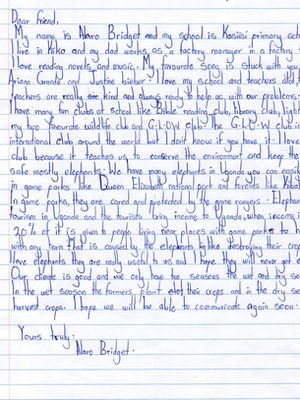 Dear friend,
My name is Naro Bridget and my school is Kasiisi primary sch
live in Kika and my dad works as a factory manager in a factory
love reading novels, and music. My favourate song is stuck with you
Ariana Grande and Justine bieber. I love my school and teachers alot,
teachers are really kind and always ready to help us with our problems.
have many fun clubs at school like Bible reading club, library club, light
my two favourate wildlife club and G.L.O.W club. The G.L.O.W club is
international club around the world but I don't know if you have it. I love
club because it teaches us to conserve the environment and keep the
safe mostly elephants. We have many elephants in Uganda you can easily
in game parks like Queen Elizabeth national park and forests like Kibale
in game parks, they are cared and protected by the game rangers. Elephan
tourism in Uganda and the tourists bring income to Uganda, when income i
20% of it is given to people living near places with game parks to h
with any harm that is caused by the elephants by like destroying their crop
love elephants they are really useful to us and I hope they will never get e
Our climate is good and we only have two seasons the wet and dry se
In the wet season the farmers plant their crops and in the dry se
harvest crops. I hope we will be able to communicate again soon.
Yours truly:
Naro Bridget.